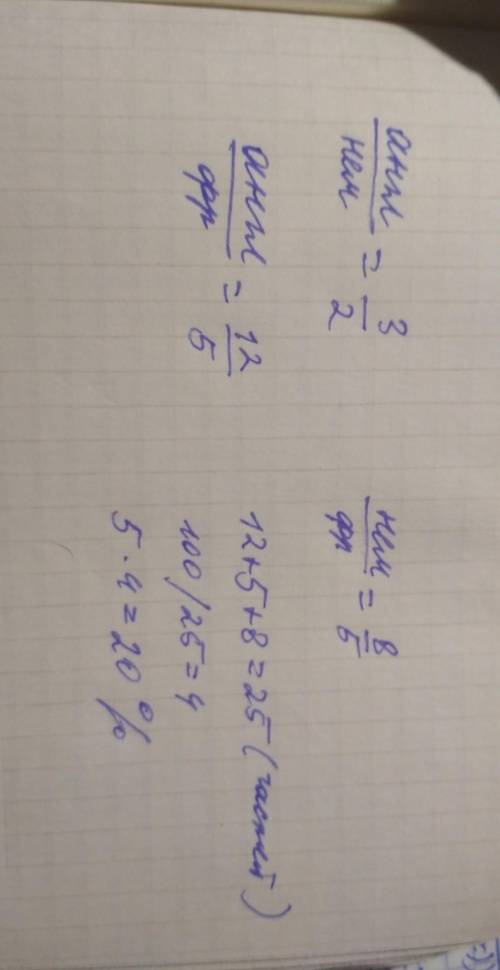 англ/нем = 3/2
англ/фр = 12/5
нем/фр = 8/5
12+5+8=25 (частей)
100/25=4
5·4=20%